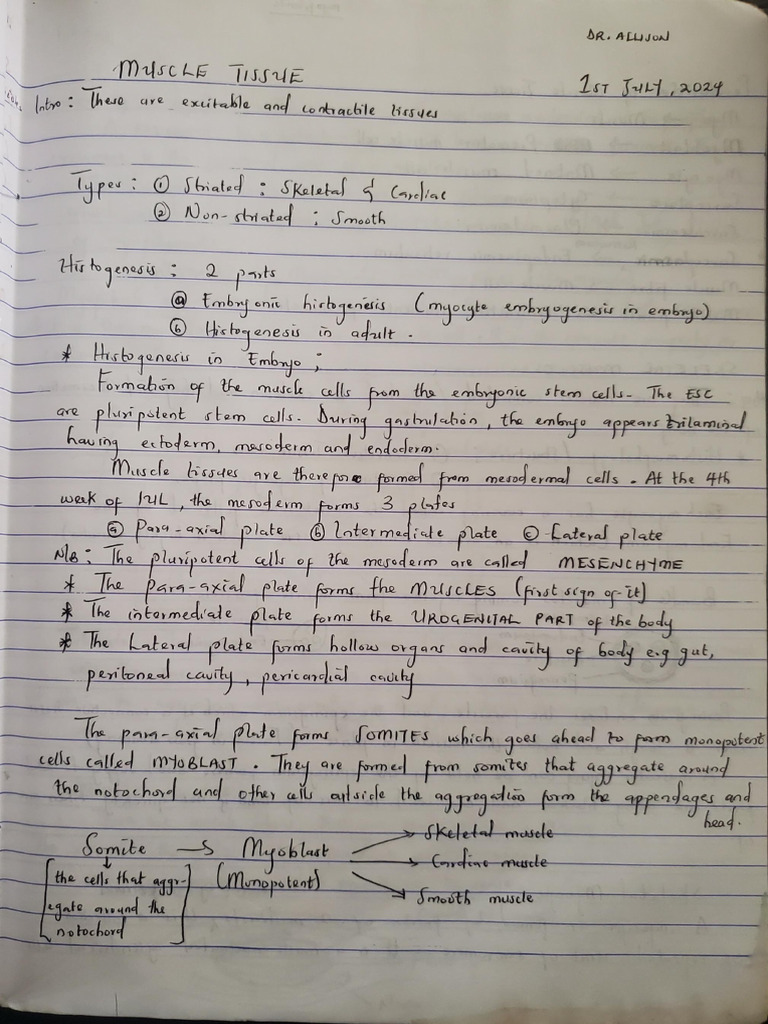 DR. ALLISON
MUSCLE TISSUE
1ST JULY, 2024
Intro: These are excitable and contractile tissues
Types: ① Striated : Skeletal & Cardiac
② Non-striated : Smooth
Histogenesis : 2 parts
ⓐ Embryonic histogenesis (myocyte embryogenesis in embryo)
ⓑ Histogenesis in adult.
* Histogenesis in Embryo ;
Formation of the muscle cells from the embryonic stem cells- The ESC
are pluripotent stem cells. During gastrulation, the embryo appears trilaminal
having ectoderm, mesoderm and endoderm.
Muscle tissues are therefore formed from mesodermal cells. At the 4th
week of IUL, the mesoderm forms 3 plates
ⓐ Para-axial plate ⓑ Intermediate plate ⓒ Lateral plate
N/B: The pluripotent cells of the mesoderm are called MESENCHYME
* The para-axial plate forms the MUSCLES (first sign of it)
* The intermediate plate forms the UROGENITAL PART of the body
* The Lateral plate forms hollow organs and cavity of body e.g gut,
peritoneal cavity, pericardial cavity
The para-axial plate forms SOMITES which goes ahead to form monopotent
cells called MYOBLAST. They are formed from somites that aggregate around
the notochord and other cells outside the aggregation form the appendages and
head.
Somite → Myoblast
(Monopotent)
Skeletal muscle
Cardiac muscle
Smooth muscle
[the cells that aggr-
egate around the
notochord]